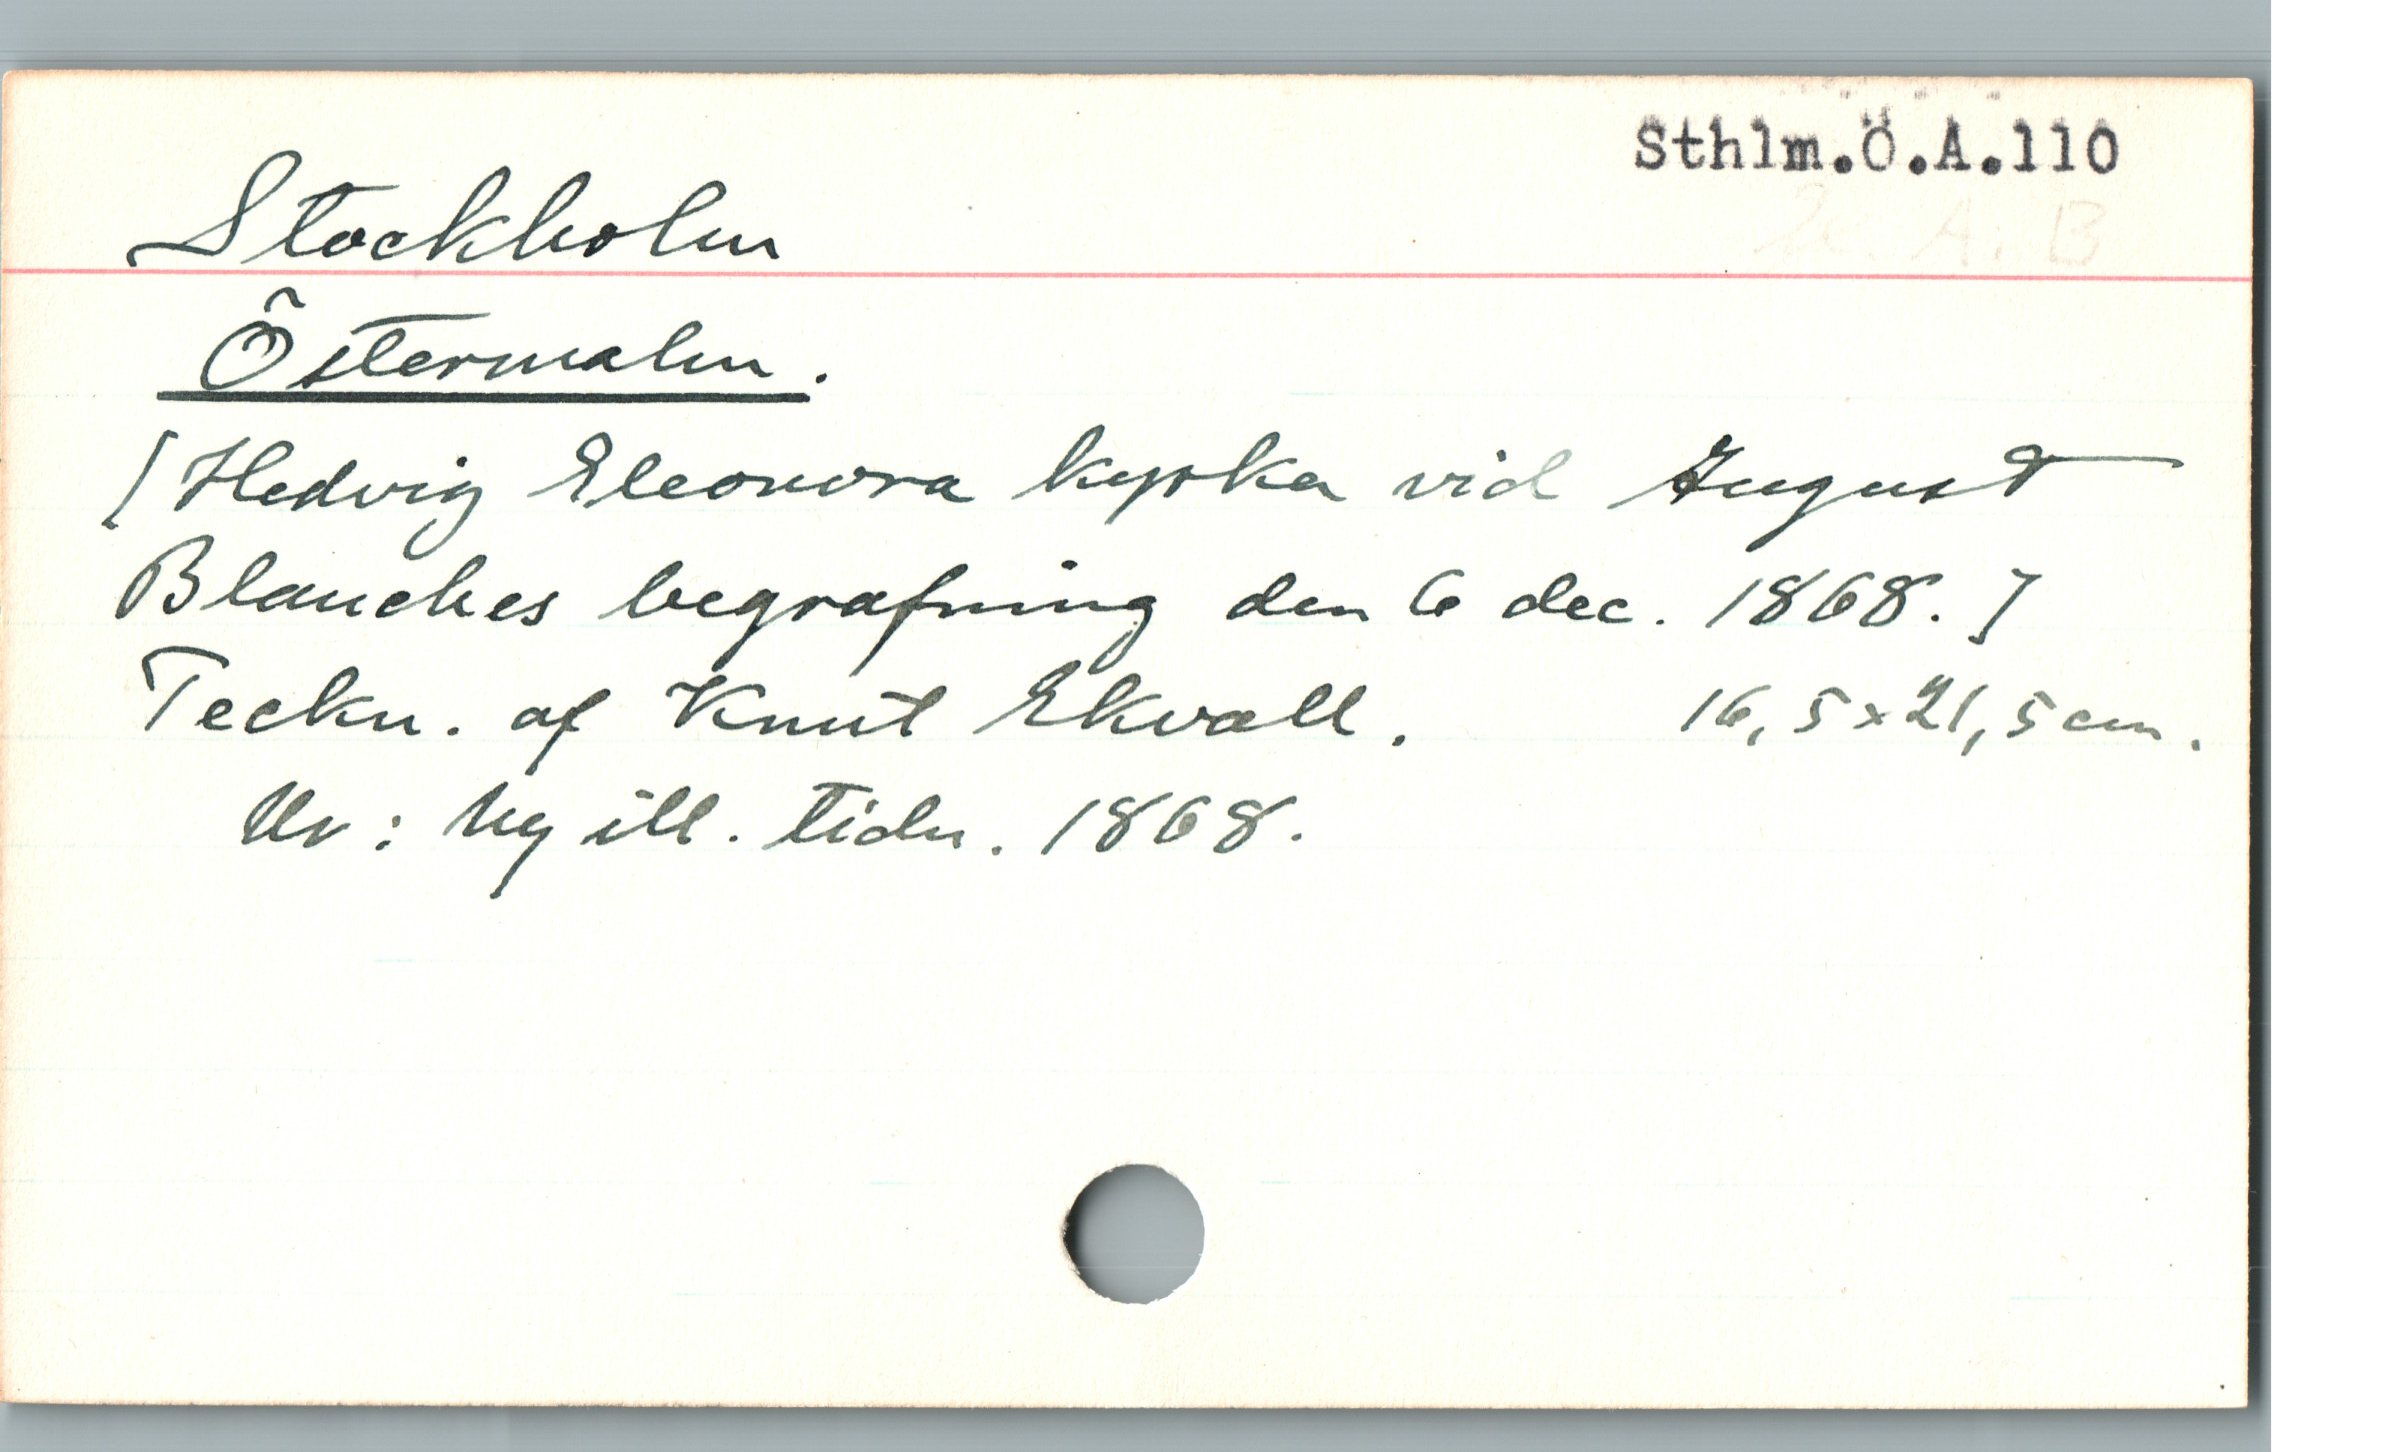 Sthlm.Ö.A.110
Stockholm
Östermalm.
[Hedvig Eleonora kyrka vid August
Blanches begrafning den 6 dec. 1868.]
Teckn. af Knut Ekvall. 16,5 x 21,5 cm.
Ur: Ny ill. tidn. 1868.